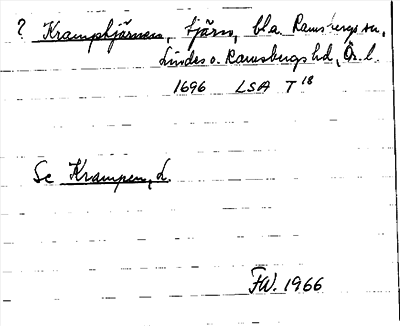 ? Kramphjärnen, tjärn, bl.a. Ramsbergs sn,
Lindes o. Ramsbergs hd, Ö. l.
1696 LSA T 18
Se Krampen, L.
FW. 1966